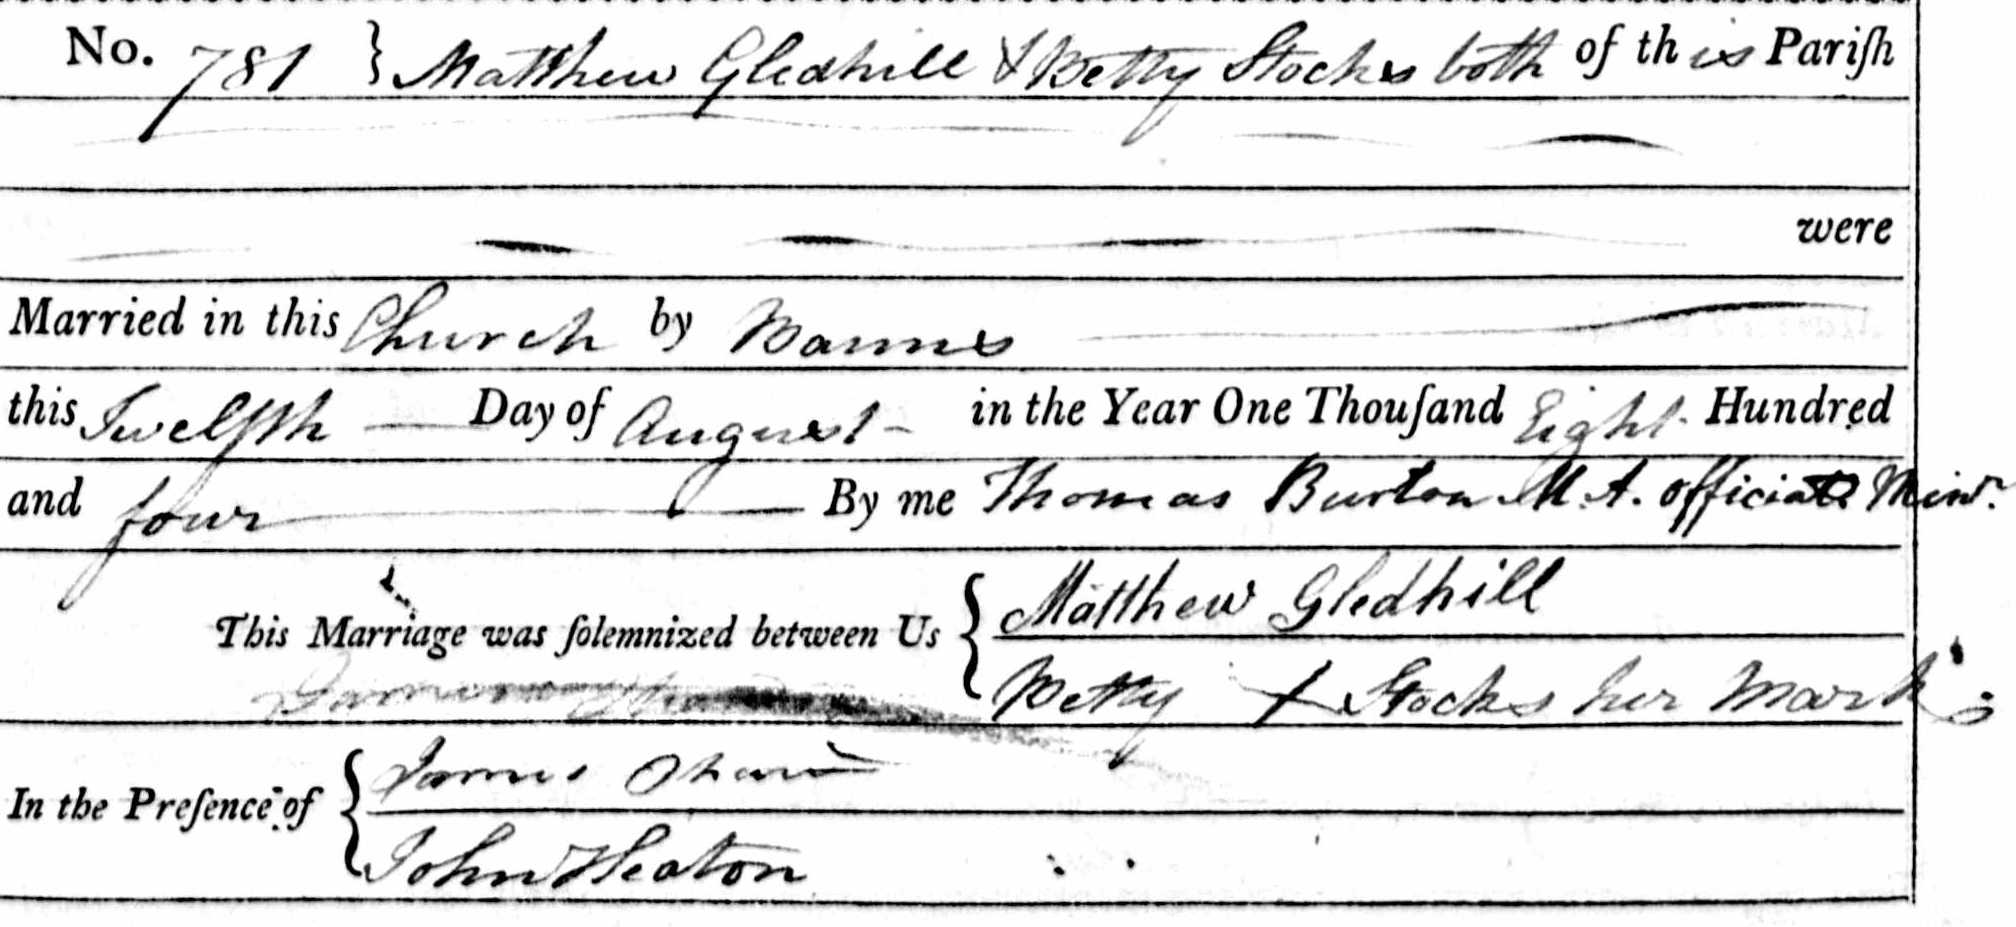 No. 781 } Matthew Gledhill & Betty Stocks both of this Pariſh
were
Married in this Church by Banns
this Twelfth Day of August in the Year One Thouſand Eight Hundred
and four By me Thomas Burton M.A. officiat Minr.
This Marriage was ſolemnized between Us { Matthew Gledhill
Betty X Stocks her Mark
In the Preſence of { James Shaw
John Heaton